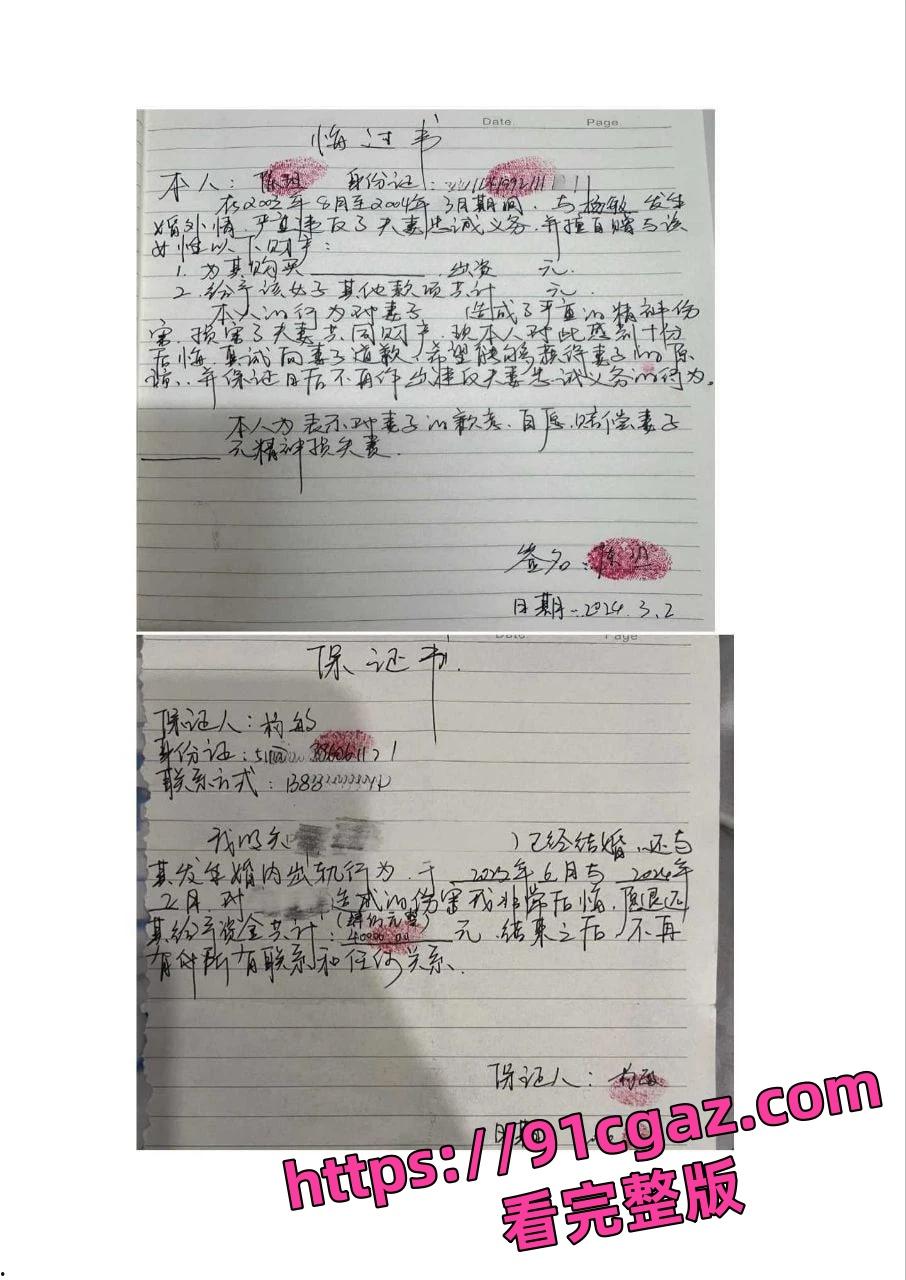 Date. Page.
悔过书
本人: 陈 身份证:
在2003年8月至2024年3月期间,与杨敏发生
婚外情,严重违反了夫妻忠诚义务,并擅自赠与该
女性以下财产:
1. 为其购买 出资 元.
2. 给予该女子其他款项共计 元.
本人的行为对妻子 造成了严重的精神伤
害,损害了夫妻共同财产,现本人对此感到十分
后悔,真诚向妻子道歉,希望能够获得妻子的原
谅,并保证日后不再作出违反夫妻忠诚义务的行为。
本人为表示对妻子的歉意,自愿赔偿妻子
元精神损失费.
签名: 陈
日期:2024.3.2
Date Page
保证书.
保证人:杨敏
身份证:
联系方式:
我明知 已经结婚,还与
其发生婚内出轨行为,于 年6月与2024年
2月 对 造成的伤害我非常后悔,愿退还
其给予资金共计:40000.00元,结束之后,不再
有任何关系.
保证人:杨
日期
https://91cgaz.com
看完整版